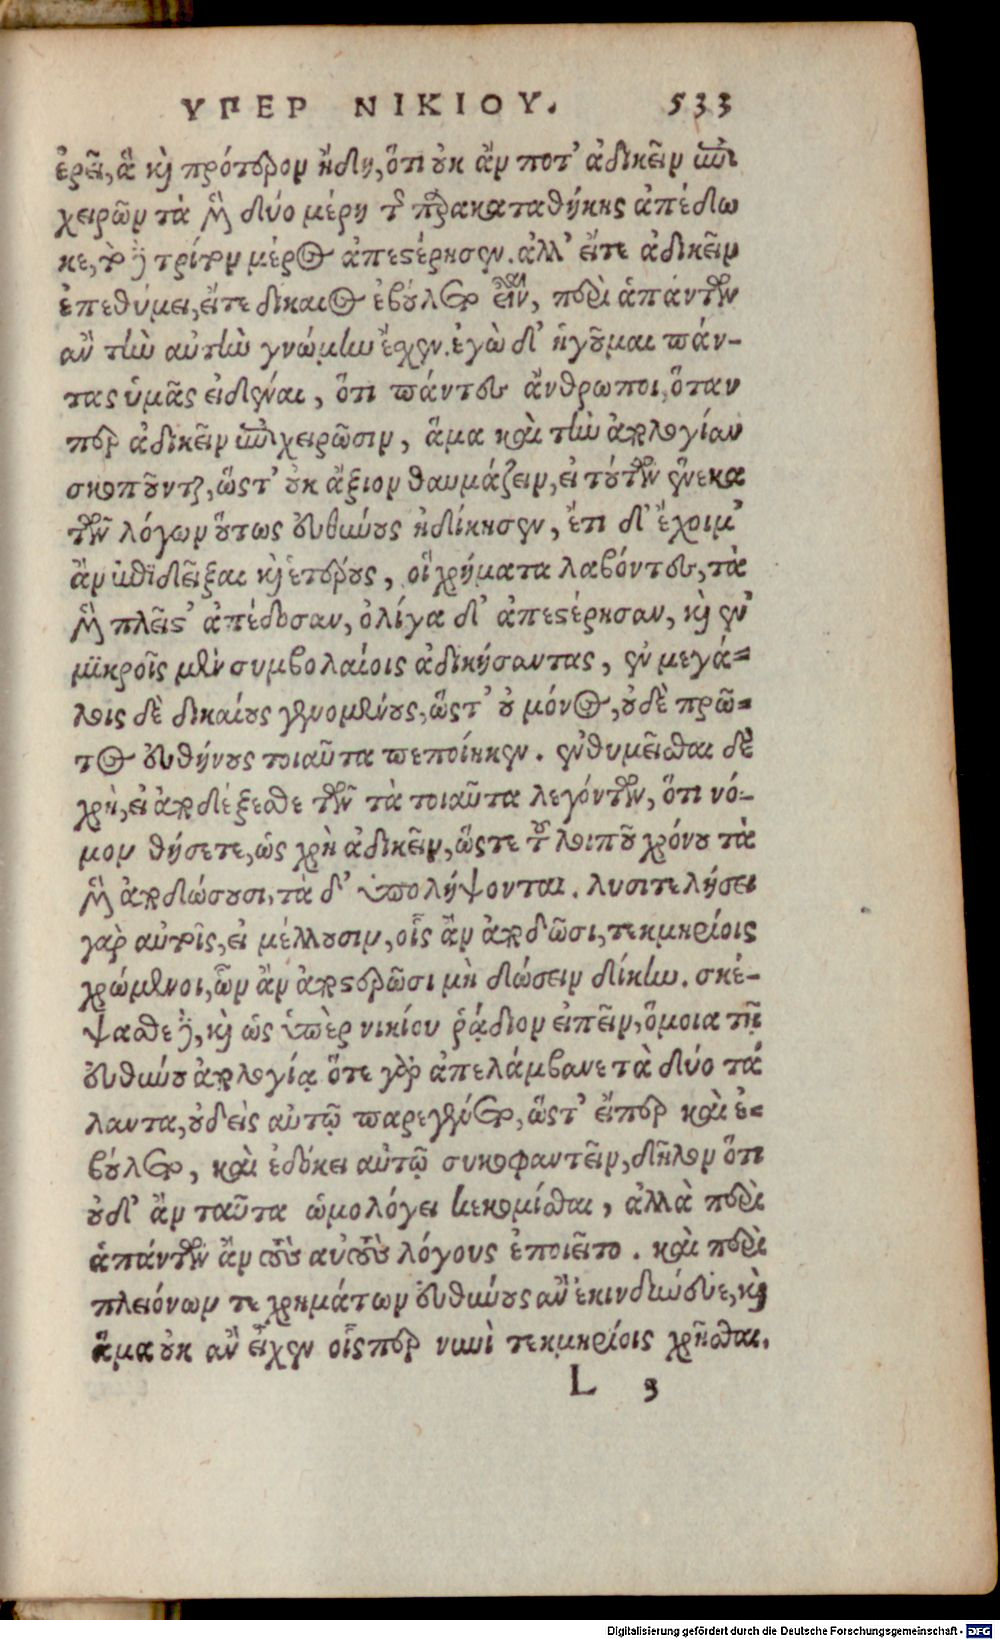 ΥΠΕΡ ΝΙΚΙΟΥ. 533
ἐρεῖ, ἃ καὶ πρότερον ἤδη, ὅτι οὐκ ἄν ποτ' ἀδικεῖν ἐπι
χειρῶν τὰ μὲν δύο μέρη τῆς παρακαταθήκης ἀπέδω
κε, τὸ δὲ τρίτον μέρος ἀπεστέρησεν. ἀλλ' εἴτε ἀδικεῖν
ἐπεθύμει, εἴτε δίκαιος ἐβούλετο εἶναι, περὶ ἁπάντων
ἂν τὴν αὐτὴν γνώμην ἔχειν. ἐγὼ δ' ἡγοῦμαι πάν-
τας ὑμᾶς εἰδέναι, ὅτι πάντες ἄνθρωποι, ὅταν
περ ἀδικεῖν ἐπιχειρῶσιν, ἅμα καὶ τὴν ἀπολογίαν
σκοποῦνται, ὥστ' οὐκ ἄξιον θαυμάζειν, εἰ τούτων ἕνεκα
τῶν λόγων οὕτως Εὐθύνους ἠδίκησεν, ἔτι δ' ἔχοιμ'
ἂν ἐπιδεῖξαι καὶ ἑτέρους, οἳ χρήματα λαβόντες, τὰ
μὲν πλεῖστ' ἀπέδοσαν, ὀλίγα δ' ἀπεστέρησαν, καὶ ἐν
μικροῖς μὲν συμβολαίοις ἀδικήσαντας, ἐν μεγά-
λοις δὲ δικαίους γενομένους, ὥστ' οὐ μόνος, οὐδὲ πρῶ-
τος Εὐθύνους τοιαῦτα πεποίηκεν. ἐνθυμεῖσθαι δὲ
χρὴ, εἰ ἀποδέξεσθε τῶν τὰ τοιαῦτα λεγόντων, ὅτι νό-
μον θήσετε, ὡς χρὴ ἀδικεῖν, ὥστε τοῦ λοιποῦ χρόνου τὰ
μὲν ἀποδώσουσι, τὰ δ' ὑπολήψονται. λυσιτελήσει
γὰρ αὐτοῖς, εἰ μέλλουσιν, οἷς ἂν ἀποδῶσι, τεκμηρίοις
χρώμενοι, ὧν ἂν ἀποστερῶσι μὴ δώσειν δίκην. σκέ-
ψασθε δὲ, καὶ ὡς ὑπὲρ νικίου ῥᾴδιον εἰπεῖν, ὅμοια τῇ
Εὐθύνου ἀπολογίᾳ ὅτε γὰρ ἀπελάμβανε τὰ δύο τά
λαντα, οὐδεὶς αὐτῷ παρεγένετο, ὥστ' εἴπερ καὶ ἐ-
βούλετο, καὶ ἐδόκει αὐτῷ συκοφαντεῖν, δῆλον ὅτι
οὐδ' ἂν ταῦτα ὡμολόγει κεκομίσθαι, ἀλλὰ περὶ
ἁπάντων ἂν τοὺς αὐτοὺς λόγους ἐποιεῖτο. καὶ περὶ
πλειόνων τε χρημάτων Εὐθύνους ἂν ἐκινδύνευε, καὶ
ἅμα οὐκ ἂν εἶχεν οἷσπερ νυνὶ τεκμηρίοις χρῆσθαι.
L 3
Digitalisierung gefördert durch die Deutsche Forschungsgemeinschaft - DFG